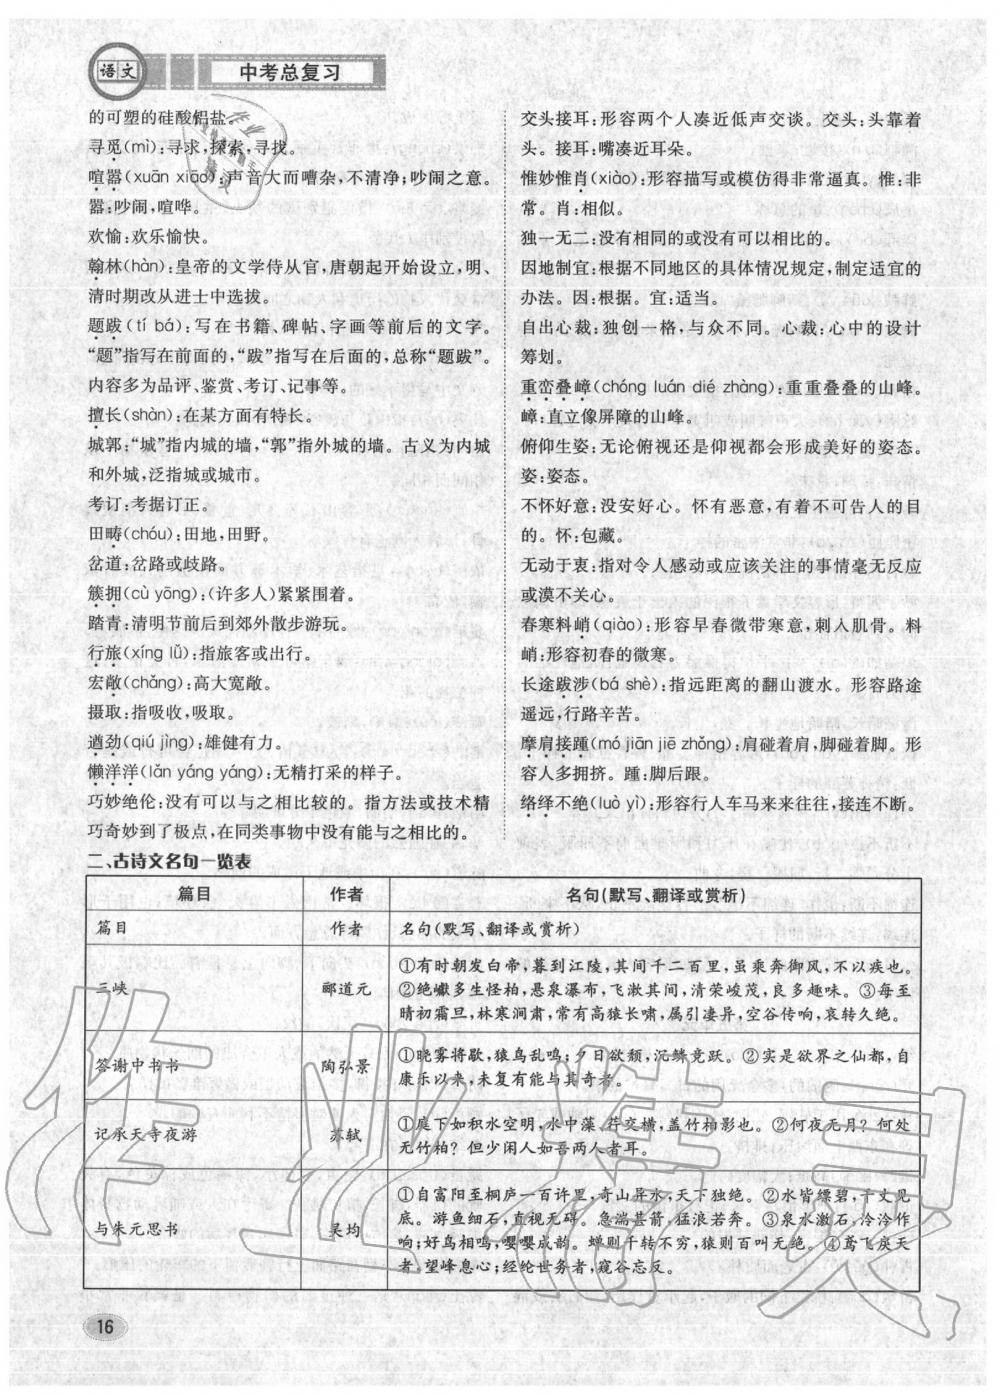 语文
中考总复习
的可塑的硅酸铝盐。
寻觅(mì):寻求,探索,寻找。
喧嚣(xuān xiāo):声音大而嘈杂,不清净;吵闹之意。
嚣:吵闹,喧哗。
欢愉:欢乐愉快。
翰林(hàn):皇帝的文学侍从官,唐朝起开始设立,明、
清时期改从进士中选拔。
题跋(tí bá):写在书籍、碑帖、字画等前后的文字。
“题”指写在前面的,“跋”指写在后面的,总称“题跋”。
内容多为品评、鉴赏、考订、记事等。
擅长(shàn):在某方面有特长。
城郭:“城”指内城的墙,“郭”指外城的墙。古义为内城
和外城,泛指城或城市。
考订:考据订正。
田畴(chóu):田地,田野。
岔道:岔路或歧路。
簇拥(cù yōng):(许多人)紧紧围着。
踏青:清明节前后到郊外散步游玩。
行旅(xíng lǚ):指旅客或出行。
宏敞(chǎng):高大宽敞。
摄取:指吸收,吸取。
遒劲(qiú jìng):雄健有力。
懒洋洋(lǎn yáng yáng):无精打采的样子。
巧妙绝伦:没有可以与之相比较的。指方法或技术精
巧奇妙到了极点,在同类事物中没有能与之相比的。
交头接耳:形容两个人凑近低声交谈。交头:头靠着
头。接耳:嘴凑近耳朵。
惟妙惟肖(xiào):形容描写或模仿得非常逼真。惟:非
常。肖:相似。
独一无二:没有相同的或没有可以相比的。
因地制宜:根据不同地区的具体情况规定,制定适宜的
办法。因:根据。宜:适当。
自出心裁:独创一格,与众不同。心裁:心中的设计
筹划。
重峦叠嶂(chóng luán dié zhàng):重重叠叠的山峰。
嶂:直立像屏障的山峰。
俯仰生姿:无论俯视还是仰视都会形成美好的姿态。
姿:姿态。
不怀好意:没安好心。怀有恶意,有着不可告人的目
的。怀:包藏。
无动于衷:指对令人感动或应该关注的事情毫无反应
或漠不关心。
春寒料峭(qiào):形容早春微带寒意,刺人肌骨。料
峭:形容初春的微寒。
长途跋涉(bá shè):指远距离的翻山渡水。形容路途
遥远,行路辛苦。
摩肩接踵(mó jiān jiē zhǒng):肩碰着肩,脚碰着脚。形
容人多拥挤。踵:脚后跟。
络绎不绝(luò yì):形容行人车马来来往往,接连不断。
二、古诗文名句一览表
篇目 作者 名句(默写、翻译或赏析)
篇目 作者 名句(默写、翻译或赏析)
三峡 郦道元 ①有时朝发白帝,暮到江陵,其间千二百里,虽乘奔御风,不以疾也。
②绝巘多生怪柏,悬泉瀑布,飞漱其间,清荣峻茂,良多趣味。③每至
晴初霜旦,林寒涧肃,常有高猿长啸,属引凄异,空谷传响,哀转久绝。
答谢中书书 陶弘景 ①晓雾将歇,猿鸟乱鸣;夕日欲颓,沉鳞竞跃。②实是欲界之仙都,自
康乐以来,未复有能与其奇者。
记承天寺夜游 苏轼 ①庭下如积水空明,水中藻、荇交横,盖竹柏影也。②何夜无月?何处
无竹柏?但少闲人如吾两人者耳。
与朱元思书 吴均 ①自富阳至桐庐一百许里,奇山异水,天下独绝。②水皆缥碧,千丈见
底。游鱼细石,直视无碍。急湍甚箭,猛浪若奔。③泉水激石,泠泠作
响;好鸟相鸣,嘤嘤成韵。蝉则千转不穷,猿则百叫无绝。④鸢飞戾天
者,望峰息心;经纶世务者,窥谷忘反。
16